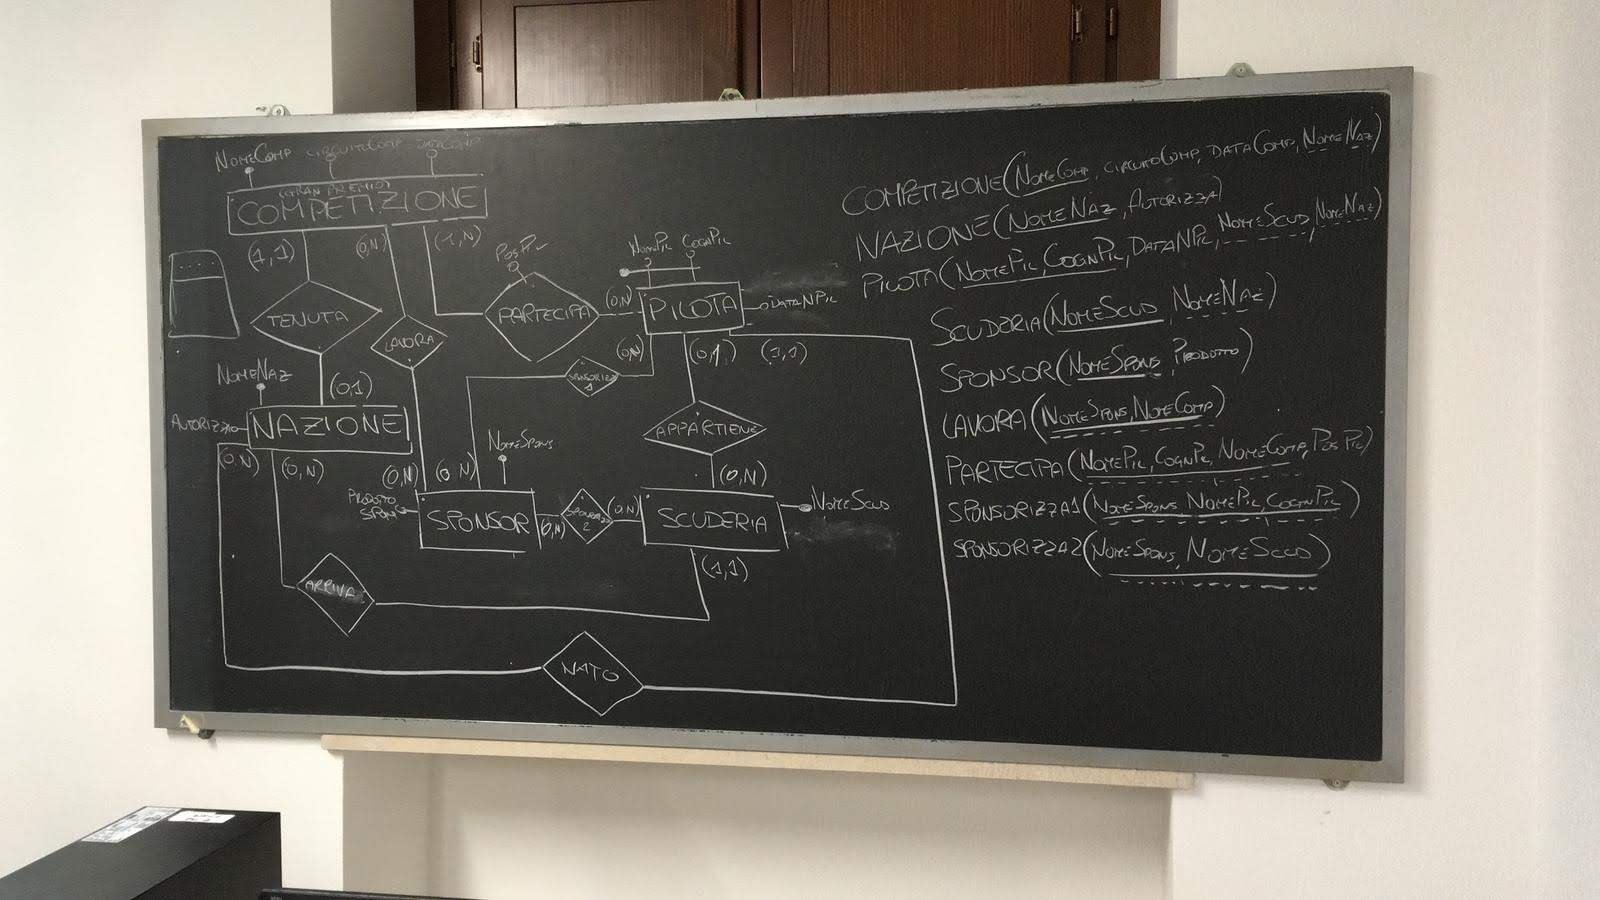 NOMECOMP CIRCUITOCOMP DATACOMP
(GRAN PREMIO)
COMPETIZIONE
(1,1) (0,N) (1,N)
POSPIL
NOMEPIL COGNPIL
TENUTA
LAVORA
PARTECIPA
(0,N)
PILOTA
DATANPIL
(0,N) (0,1) (1,1)
SPONSORIZZA
1
NOMENAZ
(0,1)
AUTORIZZA
NAZIONE
APPARTIENE
NOMESPONS
(0,N) (0,N) (0,N) (0,N) (0,N)
PRODOTTO
SPONS
SPONSOR
(0,N)
2
(0,N)
SCUDERIA
NOMESCUD
(1,1)
ARRIVA
NATO
COMPETIZIONE(NOMECOMP, CIRCUITOCOMP, DATACOMP, NOMENAZ)
NAZIONE(NOMENAZ, AUTORIZZA)
PILOTA(NOMEPIL, COGNPIL, DATANPIL, NOMESCUD, NOMENAZ)
SCUDERIA(NOMESCUD, NOMENAZ)
SPONSOR(NOMESPONS, PRODOTTO)
LAVORA(NOMESPONS, NOMECOMP)
PARTECIPA(NOMEPIL, COGNPIL, NOMECOMP, POSPIL)
SPONSORIZZA1(NOMESPONS, NOMEPIL, COGNPIL)
SPONSORIZZA2(NOMESPONS, NOMESCUD)